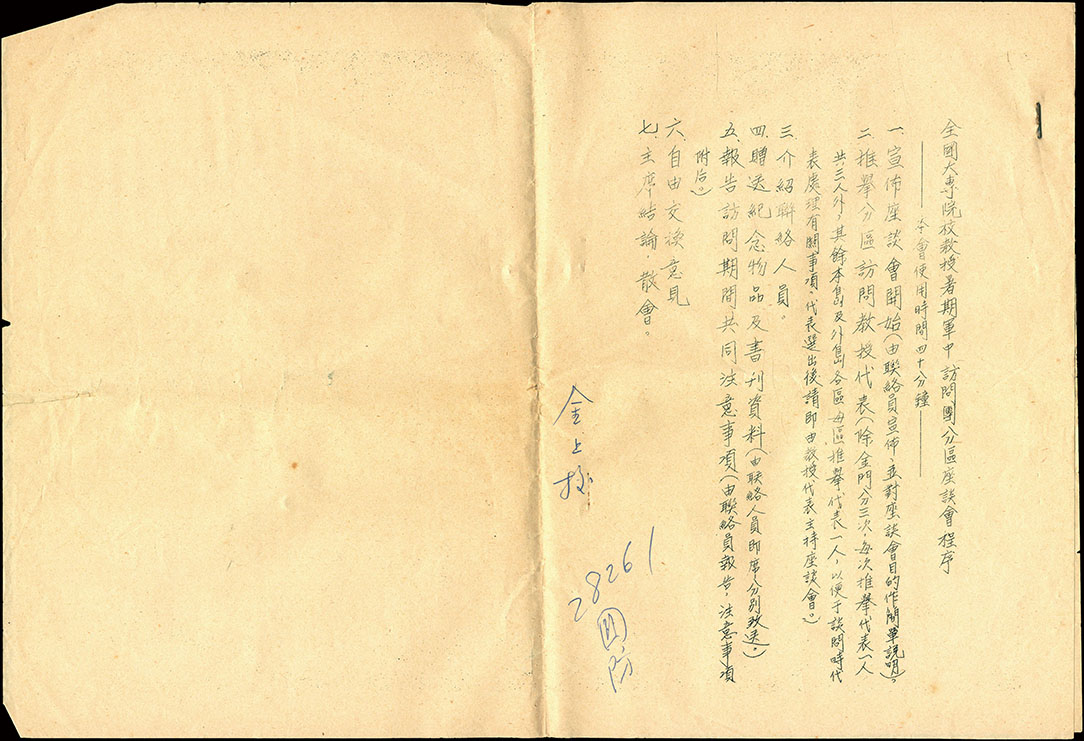 全國大專院校教授暑期軍中訪問團分區座談會程序
——本會使用時間四十分鐘——
一、宣佈座談會開始(由聯絡員宣佈、並對座談會目的作簡單說明)。
二、推舉分區訪問教授代表(除金門分三次,每次推舉代表一人
共三人外,其餘本島及外島各區每區推舉代表一人,以便于訪問時代
表處理有關事項、代表選出後請即由教授代表主持座談會。)
三、介紹聯絡人員。
四、贈送紀念物品及書刊資料(由聯絡人員即席分別致送。)
五、報告訪問期間共同注意事項(由聯絡員報告,注意事項
附后。)
六、自由交換意見
七、主席結論,散會。
金上校
28261
國防